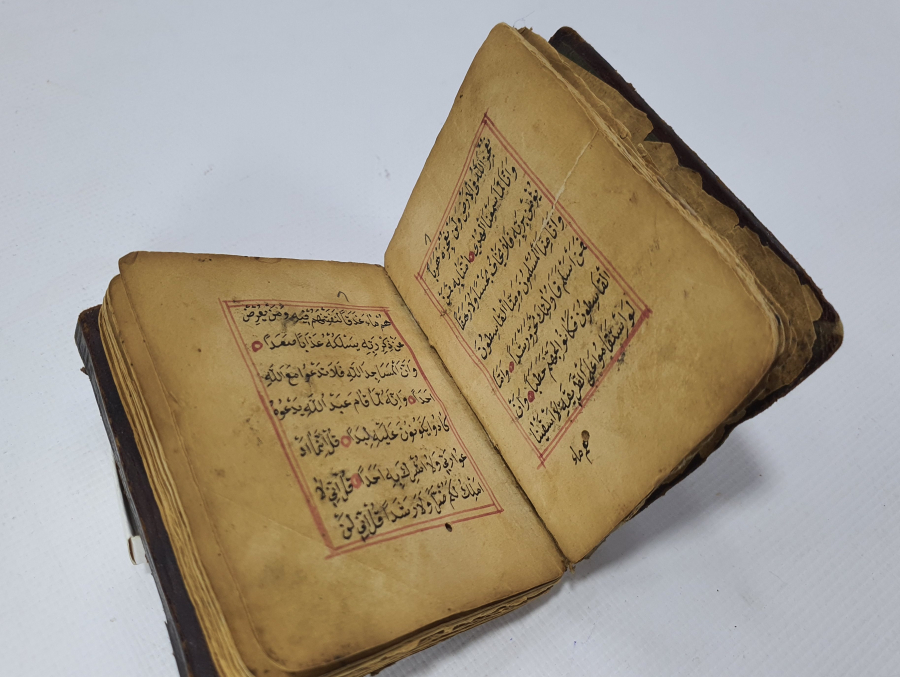 نُعْجِزَ اللّٰهَ فِي الْاَرْضِ وَلَنْ نُعْجِزَهُ هَرَبًا
وَاَنَّا لَمَّا سَمِعْنَا الْهُدٰى اٰمَنَّا بِهِ فَمَنْ
يُؤْمِنْ بِرَبِّهِ فَلَا يَخَافُ بَخْسًا وَلَا رَهَقًا
وَاَنَّا مِنَّا الْمُسْلِمُونَ وَمِنَّا الْقَاسِطُونَ
فَمَنْ اَسْلَمَ فَاُولٰئِكَ تَحَرَّوْا رَشَدًا وَاَمَّا
الْقَاسِطُونَ فَكَانُوا لِجَهَنَّمَ حَطَبًا وَاَنْ
لَوِ اسْتَقَامُوا عَلَى الطَّرِيقَةِ لَاَسْقَيْنَا
هُمْ مَاءً
هُمْ مَاءً غَدَقًا لِنَفْتِنَهُمْ فِيهِ وَمَنْ يُعْرِضْ
عَنْ ذِكْرِ رَبِّهِ يَسْلُكْهُ عَذَابًا صَعَدًا
وَاَنَّ الْمَسَاجِدَ لِلّٰهِ فَلَا تَدْعُوا مَعَ اللّٰهِ
اَحَدًا وَاَنَّهُ لَمَّا قَامَ عَبْدُ اللّٰهِ يَدْعُوهُ
كَادُوا يَكُونُونَ عَلَيْهِ لِبَدًا قُلْ اِنَّمَا اَدْ
عُوا رَبِّي وَلَا اُشْرِكُ بِهِ اَحَدًا قُلْ اِنِّي لَا
اَمْلِكُ لَكُمْ ضَرًّا وَلَا رَشَدًا قُلْ اِنِّي لَنْ